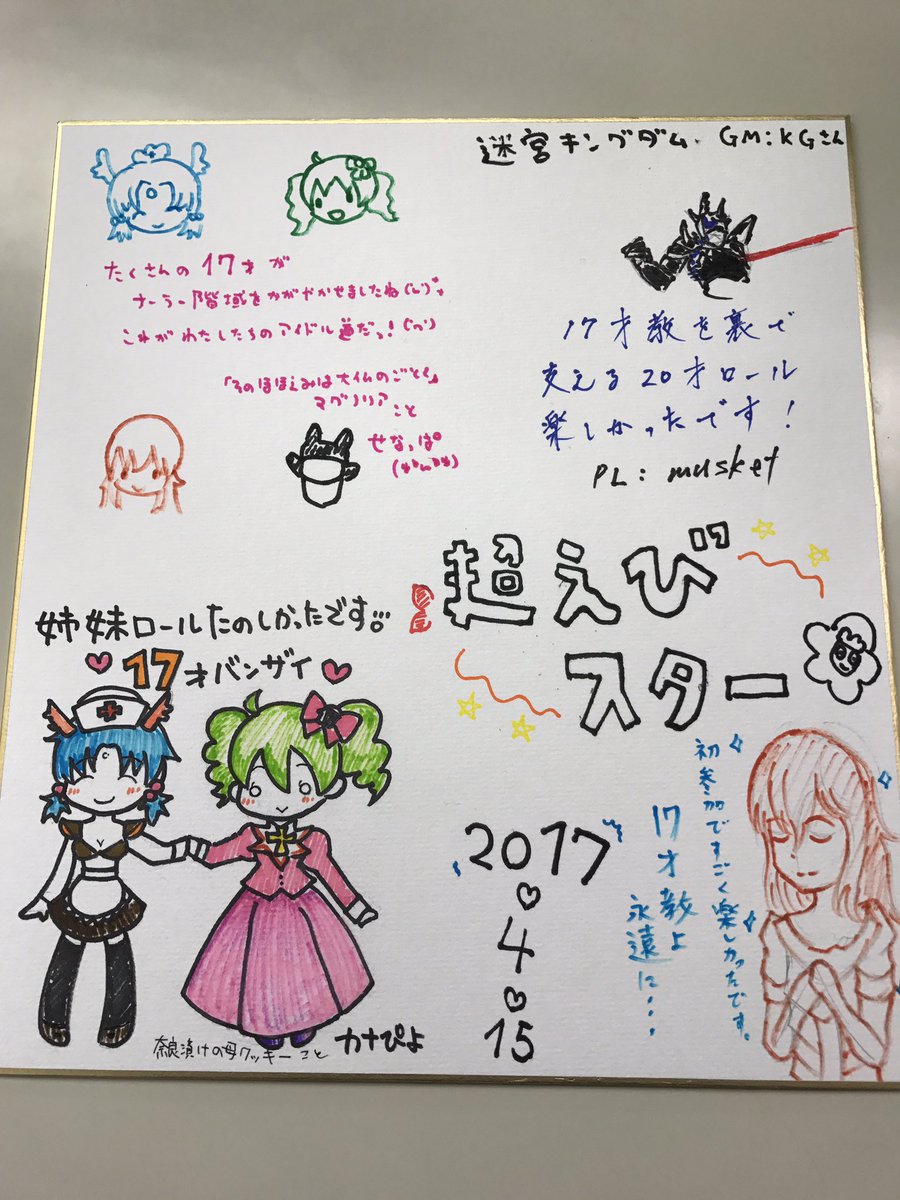 迷宮キングダム GM:KGさん
たくさんの17才が
ナーラー階域をかがやかせましたね
これがわたしたちのアイドル道だっ!
「そのほほえみは大仏のごとく」
マグノリア
こと
せなっぱ
17才教を裏で
支える20才ロール
楽しかったです!
PL:musket
超えび
スター
姉妹ロールたのしかったです。
17才バンザイ
奈良漬けの母クッキーこと カナぴよ
2017
4
15
初参加ですごく楽しかったです。
17才教よ
永遠に・・・